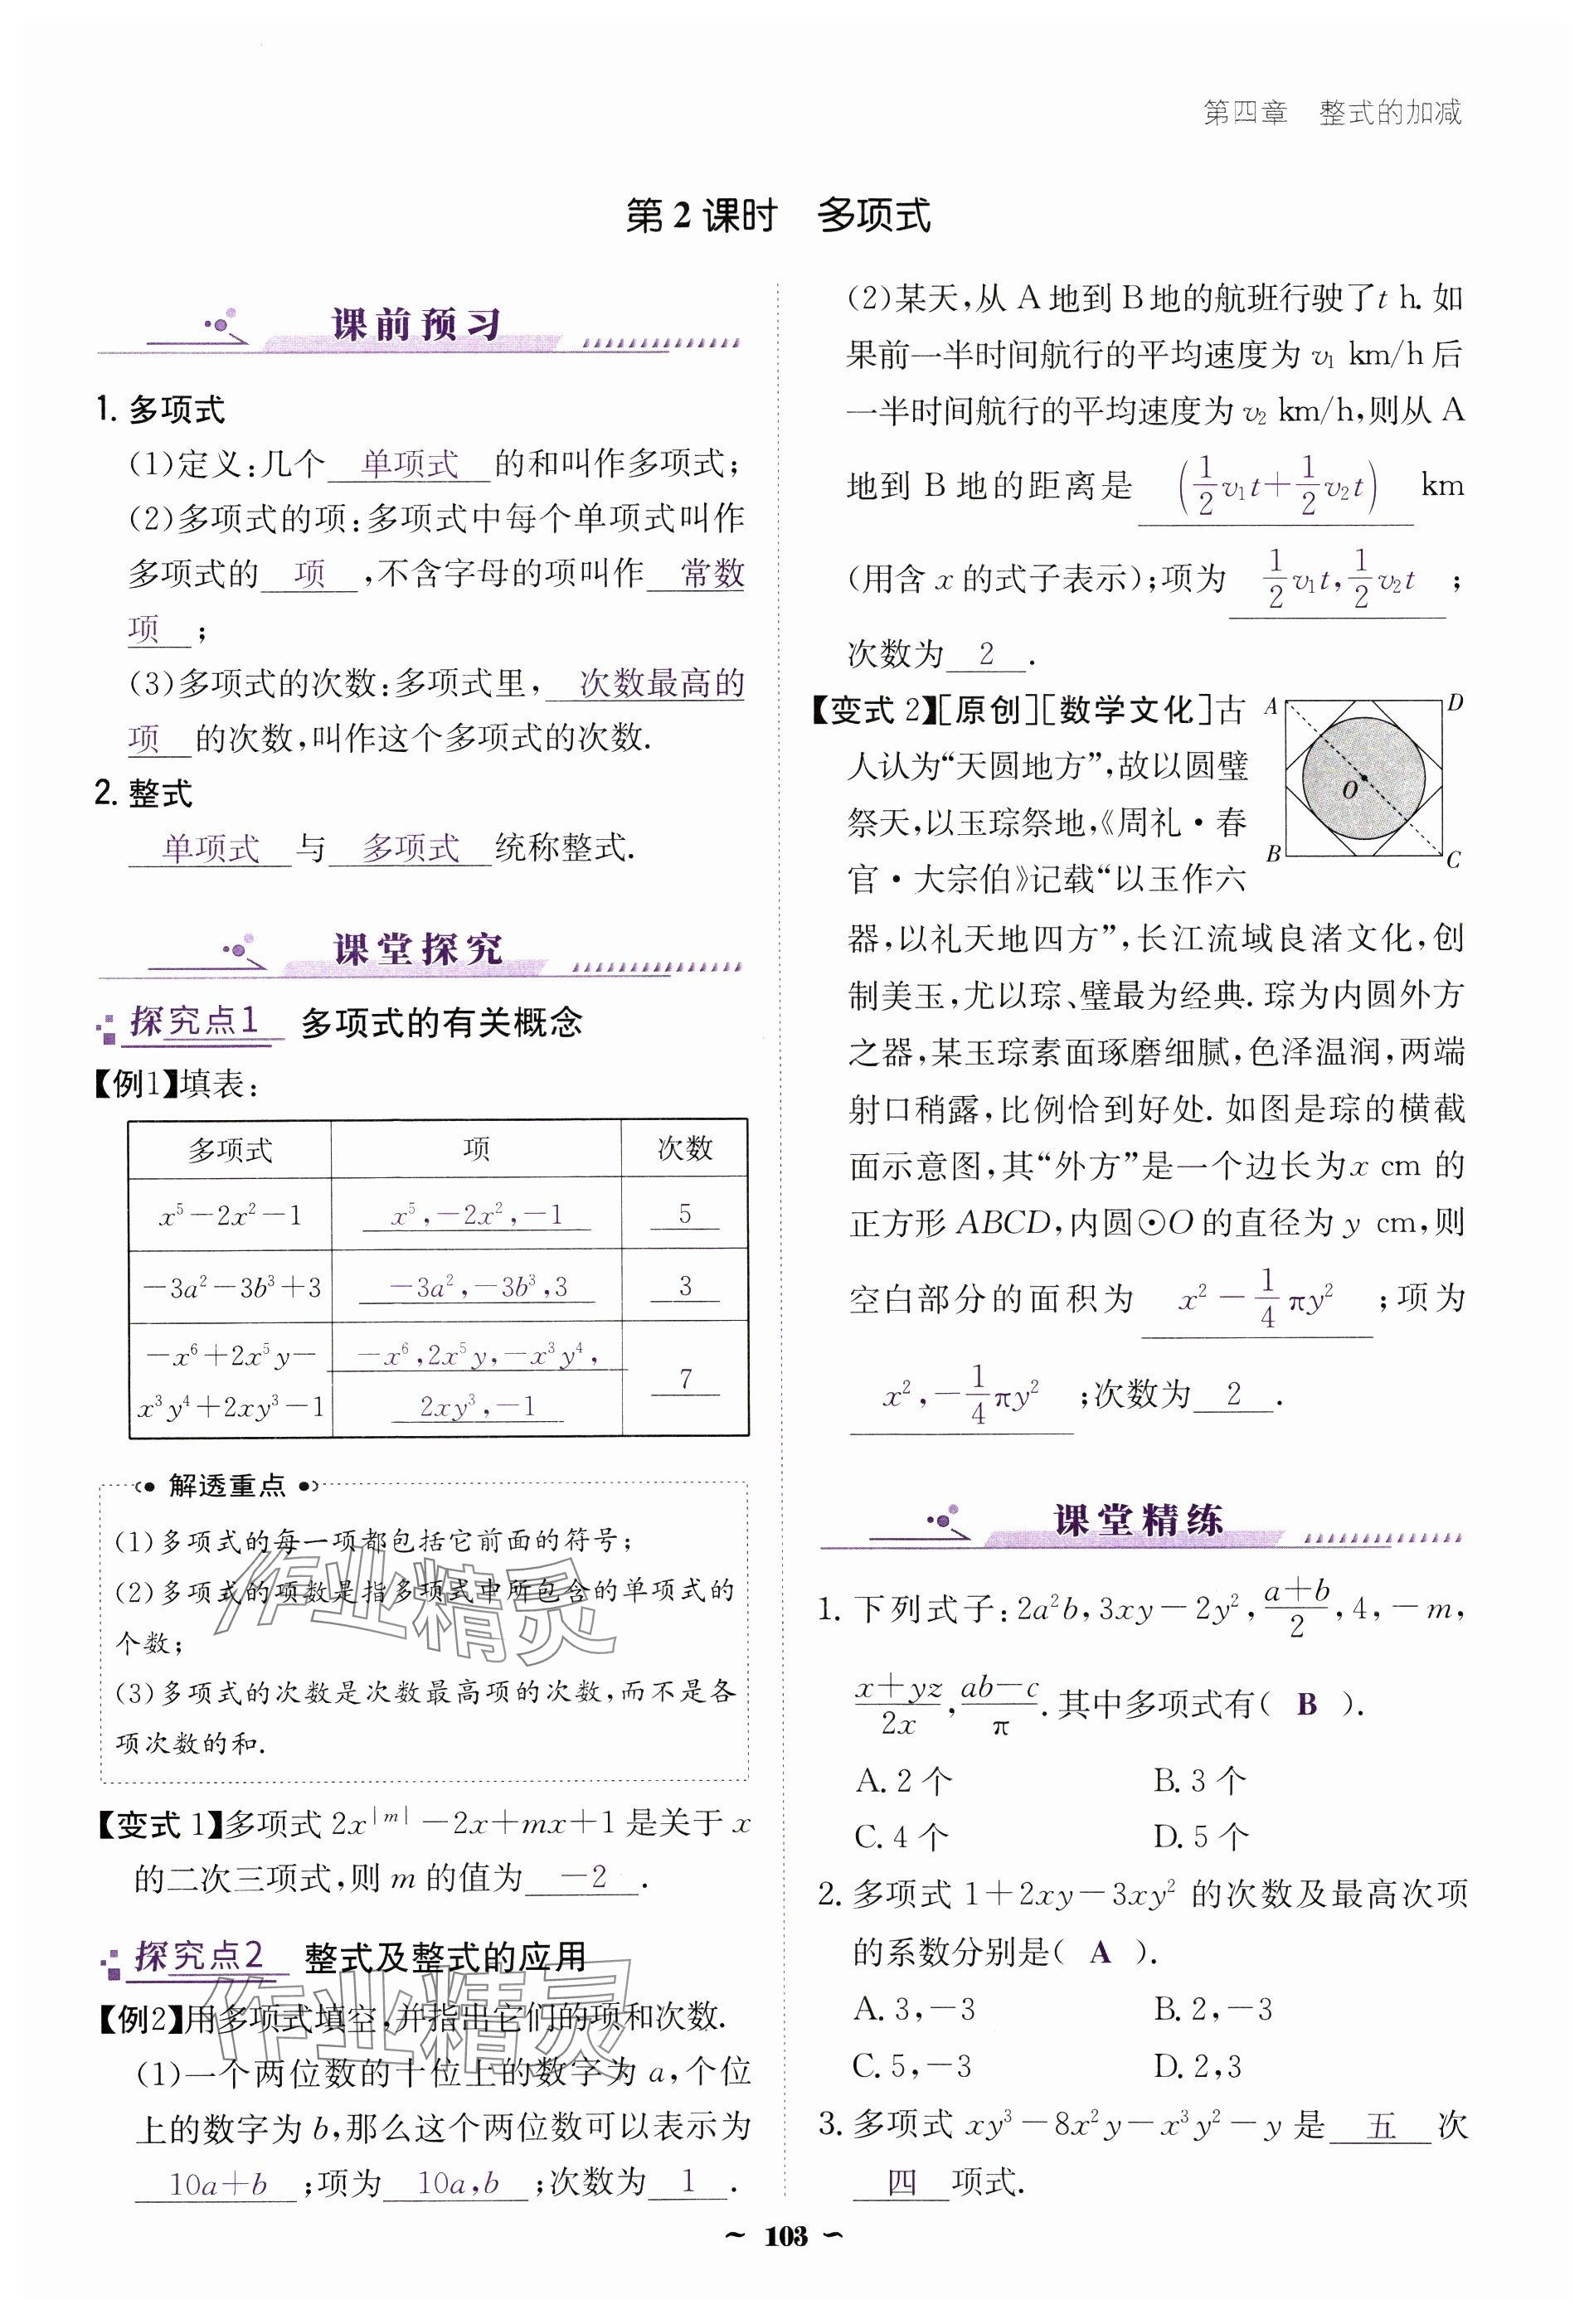 第四章　整式的加减
第 2 课时　多项式
课前预习
1. 多项式
(1)定义:几个 单项式 的和叫作多项式;
(2)多项式的项:多项式中每个单项式叫作
多项式的 项 ,不含字母的项叫作 常数
项 ;
(3)多项式的次数:多项式里, 次数最高的
项 的次数,叫作这个多项式的次数.
2. 整式
单项式 与 多项式 统称整式.
课堂探究
探究点1　多项式的有关概念
【例1】填表:
多项式　项　次数
x⁵－2x²－1　x⁵,－2x²,－1　5
－3a²－3b³＋3　－3a²,－3b³,3　3
－x⁶＋2x⁵y－　－x⁶,2x⁵y,－x³y⁴,　7
x³y⁴＋2xy³－1　2xy³,－1
解透重点
(1)多项式的每一项都包括它前面的符号;
(2)多项式的项数是指多项式中所包含的单项式的
个数;
(3)多项式的次数是次数最高项的次数,而不是各
项次数的和.
【变式 1】多项式 2x^|m|－2x＋mx＋1 是关于 x
的二次三项式,则 m 的值为 －2 .
探究点2　整式及整式的应用
【例2】用多项式填空,并指出它们的项和次数.
(1)一个两位数的十位上的数字为 a,个位
上的数字为 b,那么这个两位数可以表示为
10a＋b ;项为 10a,b ;次数为 1 .
(2)某天,从 A 地到 B 地的航班行驶了 t h. 如
果前一半时间航行的平均速度为 v₁ km/h 后
一半时间航行的平均速度为 v₂ km/h,则从 A
地到 B 地的距离是 (1/2 v₁t＋1/2 v₂t) km
(用含 x 的式子表示);项为 1/2 v₁t,1/2 v₂t ;
次数为 2 .
【变式 2】[原创][数学文化]古
人认为“天圆地方”,故以圆璧
祭天,以玉琮祭地,《周礼·春
官·大宗伯》记载“以玉作六
A
D
O
B
C
器,以礼天地四方”,长江流域良渚文化,创
制美玉,尤以琮、璧最为经典. 琮为内圆外方
之器,某玉琮素面琢磨细腻,色泽温润,两端
射口稍露,比例恰到好处. 如图是琮的横截
面示意图,其“外方”是一个边长为 x cm 的
正方形 ABCD,内圆⊙O 的直径为 y cm,则
空白部分的面积为 x²－1/4 πy² ;项为
x²,－1/4 πy² ;次数为 2 .
课堂精练
1. 下列式子:2a²b,3xy－2y²,(a＋b)/2,4,－m,
(x＋yz)/2x,(ab－c)/π.其中多项式有( B ).
A. 2 个　B. 3 个
C. 4 个　D. 5 个
2. 多项式 1＋2xy－3xy² 的次数及最高次项
的系数分别是( A ).
A. 3,－3　B. 2,－3
C. 5,－3　D. 2,3
3. 多项式 xy³－8x²y－x³y²－y 是 五 次
四 项式.
作业精灵
作业精灵
~ 103 ~